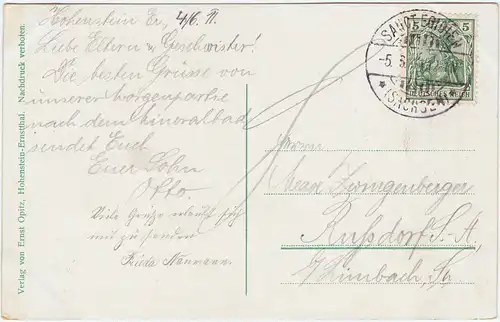 Hohenstein Er., 4/6. 11.
Liebe Eltern u. Geschwister!
Die besten Grüsse von
unserer Morgenpartie
nach dem Mineralbad
sendet Euch
Euer Sohn
Otto
Viele Grüße erlaubt sich
mit zu senden
Frieda
Verlag von Ernst Opitz, Hohenstein-Ernstthal. Nachdruck verboten.
5
DEUTSCHES REICH
-5.
* (SACHSEN)
Herrn
Max Zwingenberger
Rußdorf S.-A.
b/Limbach, Sa.